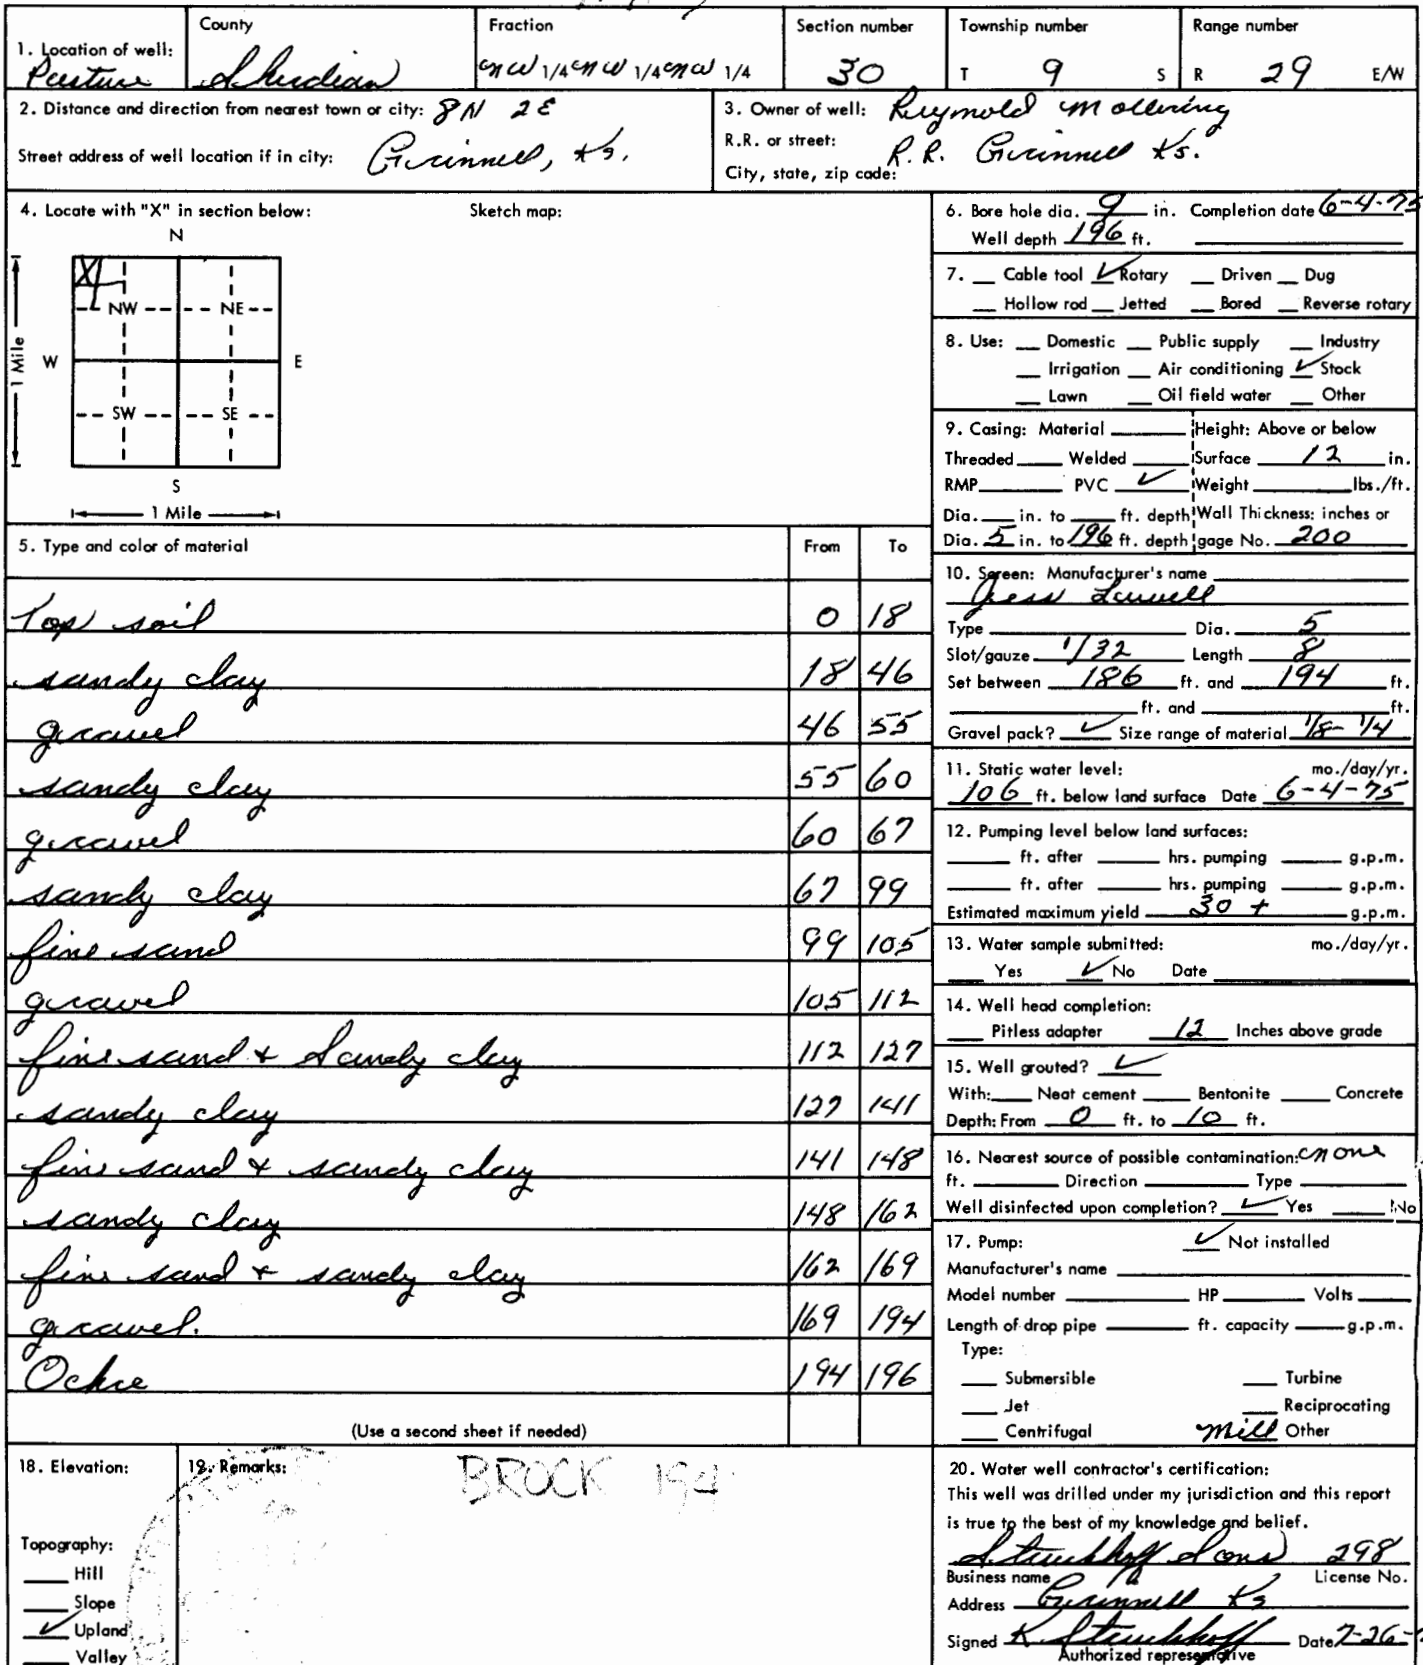 County Fraction Section number Township number Range number
1. Location of well:
Pasture Sheridian NW 1/4 NW 1/4 NW 1/4 30 T 9 S R 29 E/W
2. Distance and direction from nearest town or city: 8N 2E
Street address of well location if in city: Grinnell, Ks.
3. Owner of well: Reymold Mollering
R.R. or street: R.R. Grinnell Ks.
City, state, zip code:
4. Locate with "X" in section below: Sketch map:
N
X
NW NE
W E
1 Mile
SW SE
S
1 Mile
5. Type and color of material From To
Top soil 0 18
sandy clay 18 46
gravel 46 55
sandy clay 55 60
gravel 60 67
sandy clay 67 99
fine sand 99 105
gravel 105 112
fine sand + Sandy clay 112 127
sandy clay 127 141
fine sand + sandy clay 141 148
sandy clay 148 162
fine sand + sandy clay 162 169
gravel. 169 194
Ochre 194 196
(Use a second sheet if needed)
6. Bore hole dia. 9 in. Completion date 6-4-75
Well depth 196 ft.
7. Cable tool ✓ Rotary Driven Dug
Hollow rod Jetted Bored Reverse rotary
8. Use: Domestic Public supply Industry
Irrigation Air conditioning ✓ Stock
Lawn Oil field water Other
9. Casing: Material Height: Above or below
Threaded Welded Surface 12 in.
RMP PVC ✓ Weight lbs./ft.
Dia. in. to ft. depth Wall Thickness: inches or
Dia. 5 in. to 196 ft. depth gage No. 200
10. Screen: Manufacturer's name
Jess
Type Dia. 5
Slot/gauze 1/32 Length 8
Set between 186 ft. and 194 ft.
ft. and ft.
Gravel pack? ✓ Size range of material 1/8-1/4
11. Static water level: mo./day/yr.
106 ft. below land surface Date 6-4-75
12. Pumping level below land surfaces:
ft. after hrs. pumping g.p.m.
ft. after hrs. pumping g.p.m.
Estimated maximum yield 30 + g.p.m.
13. Water sample submitted: mo./day/yr.
Yes ✓ No Date
14. Well head completion:
Pitless adapter 12 Inches above grade
15. Well grouted? ✓
With: Neat cement Bentonite Concrete
Depth: From 0 ft. to 10 ft.
16. Nearest source of possible contamination: none
ft. Direction Type
Well disinfected upon completion? ✓ Yes No
17. Pump: ✓ Not installed
Manufacturer's name
Model number HP Volts
Length of drop pipe ft. capacity g.p.m.
Type:
Submersible Turbine
Jet Reciprocating
Centrifugal Mill Other
18. Elevation:
Topography:
Hill
Slope
✓ Upland
Valley
19. Remarks: BROCK
20. Water well contractor's certification:
This well was drilled under my jurisdiction and this report
is true to the best of my knowledge and belief.
Struckhoff Sons 298
Business name License No.
Address Grinnell Ks
Signed K Struckhoff Date 7-26-
Authorized representative